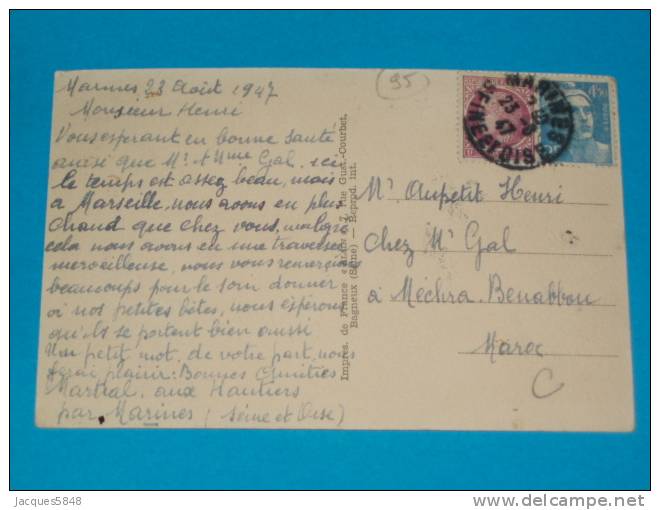 Marines 23 Août 1947
Monsieur Henri
Vous esperant en bonne santé
ainsi que Mr et Mme Gal. ici
le temps est assez beau, mais
a Marseille, nous avons eu plus
chaud que chez vous, malgré
cela nous avons eu une traversée
merveilleuse, nous vous remercions
beaucoups pour le soin donner
a nos petites bêtes, nous espérons
qu'ils se portent bien aussi
Un petit mot de votre part, nous
ferai plaisir. Bonnes Amitiés
Martial. aux Hautiers
par Marines (Seine et Oise)
(95)
Impres. de France 7, rue Gust.-Courbet,
Bagneux (Seine) — Reprod. int.
MARINES
23 -8
47
SEINE ET OISE
4F50
Mr Aupetit Henri
Chez Mr Gal
à Mechra. Benabbou
Maroc
C
Jacques5848
delcampe.net